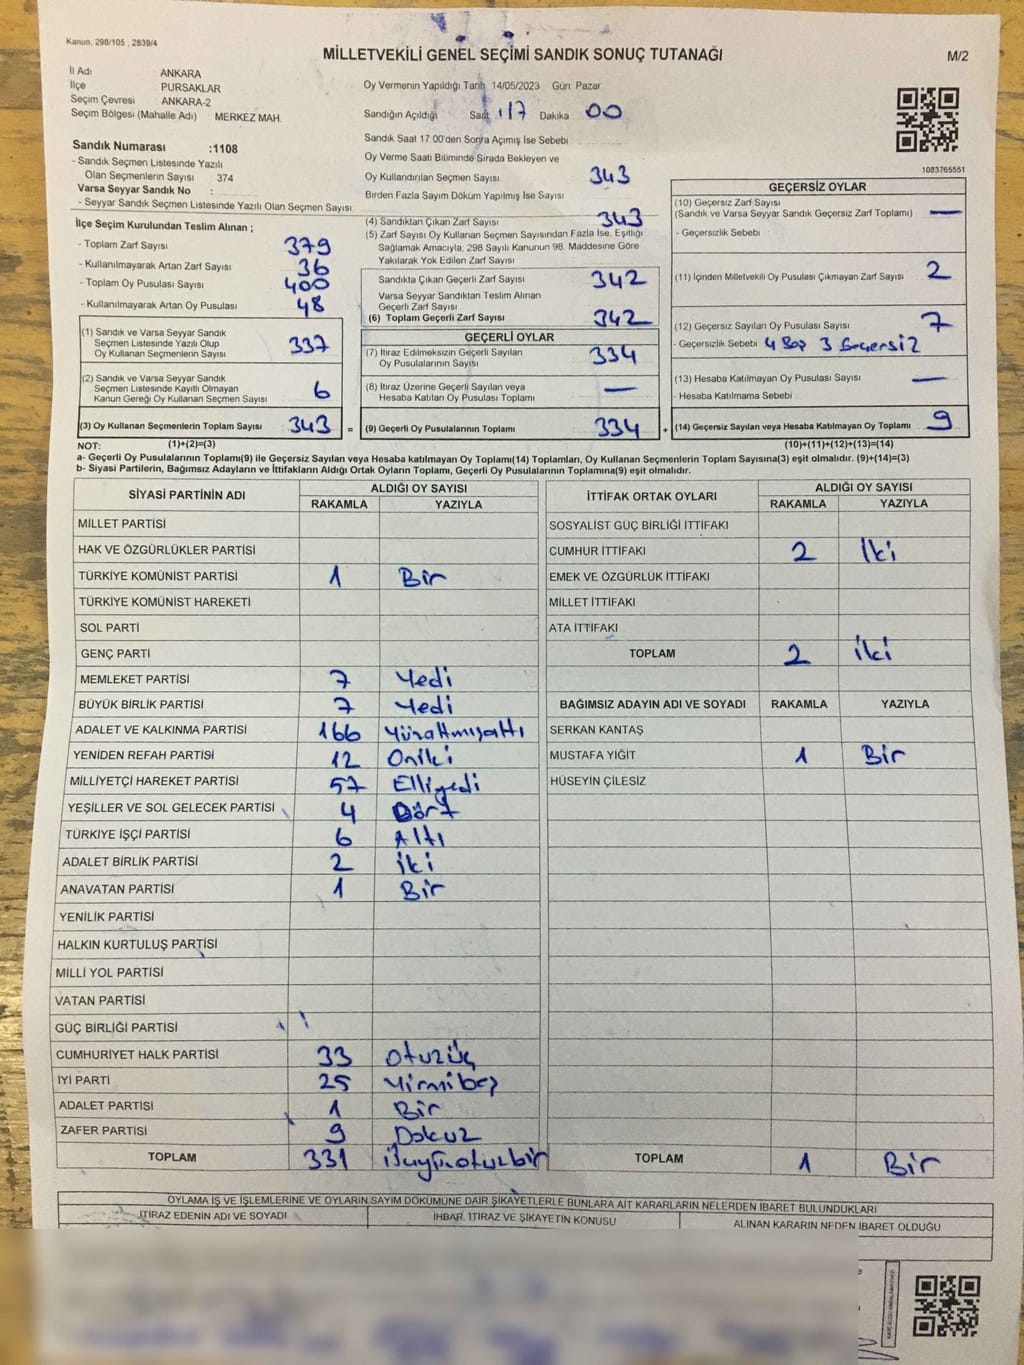 Kanun, 298/105 , 2839/4
MİLLETVEKİLİ GENEL SEÇİMİ SANDIK SONUÇ TUTANAĞI
M/2
İl Adı : ANKARA
İlçe PURSAKLAR
Seçim Çevresi : ANKARA-2
Seçim Bölgesi (Mahalle Adı) MERKEZ MAH.
Oy Vermenin Yapıldığı Tarih 14/05/2023 Gün: Pazar
Sandığın Açıldığı Saat 17 Dakika 00
Sandık Saat 17:00'den Sonra Açılmış İse Sebebi
Oy Verme Saati Bitiminde Sırada Bekleyen ve
Oy Kullandırılan Seçmen Sayısı 343
Birden Fazla Sayım Döküm Yapılmış İse Sayısı
Sandık Numarası :1108
- Sandık Seçmen Listesinde Yazılı
Olan Seçmenlerin Sayısı : 374
Varsa Seyyar Sandık No :
- Seyyar Sandık Seçmen Listesinde Yazılı Olan Seçmen Sayısı
1083765551
İlçe Seçim Kurulundan Teslim Alınan ;
- Toplam Zarf Sayısı 379
- Kullanılmayarak Artan Zarf Sayısı 36
- Toplam Oy Pusulası Sayısı 400
- Kullanılmayarak Artan Oy Pusulası 48
(1) Sandık ve Varsa Seyyar Sandık
Seçmen Listesinde Yazılı Olup
Oy Kullanan Seçmenlerin Sayısı 337
(2) Sandık ve Varsa Seyyar Sandık
Seçmen Listesinde Kayıtlı Olmayan
Kanun Gereği Oy Kullanan Seçmen Sayısı 6
(3) Oy Kullanan Seçmenlerin Toplam Sayısı 343 =
(4) Sandıktan Çıkan Zarf Sayısı 343
(5) Zarf Sayısı Oy Kullanan Seçmen Sayısından Fazla İse, Eşitliği
Sağlamak Amacıyla, 298 Sayılı Kanunun 98. Maddesine Göre
Yakılarak Yok Edilen Zarf Sayısı
Sandıkta Çıkan Geçerli Zarf Sayısı 342
Varsa Seyyar Sandıktan Teslim Alınan
Geçerli Zarf Sayısı
(6) Toplam Geçerli Zarf Sayısı 342
GEÇERLİ OYLAR
(7) İtiraz Edilmeksizin Geçerli Sayılan
Oy Pusulalarının Sayısı 334
(8) İtiraz Üzerine Geçerli Sayılan veya
Hesaba Katılan Oy Pusulası Toplamı —
(9) Geçerli Oy Pusulalarının Toplamı 334 +
GEÇERSİZ OYLAR
(10) Geçersiz Zarf Sayısı
(Sandık ve Varsa Seyyar Sandık Geçersiz Zarf Toplamı) —
- Geçersizlik Sebebi
(11) İçinden Milletvekili Oy Pusulası Çıkmayan Zarf Sayısı 2
(12) Geçersiz Sayılan Oy Pusulası Sayısı 7
- Geçersizlik Sebebi 4 Boş 3 Geçersiz
(13) Hesaba Katılmayan Oy Pusulası Sayısı —
- Hesaba Katılmama Sebebi
(14) Geçersiz Sayılan veya Hesaba Katılmayan Oy Toplamı 9
NOT: (1)+(2)=(3) (10)+(11)+(12)+(13)=(14)
a- Geçerli Oy Pusulalarının Toplamı(9) ile Geçersiz Sayılan veya Hesaba katılmayan Oy Toplamı(14) Toplamları, Oy Kullanan Seçmenlerin Toplam Sayısına(3) eşit olmalıdır. (9)+(14)=(3)
b- Siyasi Partilerin, Bağımsız Adayların ve İttifakların Aldığı Ortak Oyların Toplamı, Geçerli Oy Pusulalarının Toplamına(9) eşit olmalıdır.
SİYASİ PARTİNİN ADI ALDIĞI OY SAYISI
RAKAMLA YAZIYLA
MİLLET PARTİSİ
HAK VE ÖZGÜRLÜKLER PARTİSİ
TÜRKİYE KOMÜNİST PARTİSİ 1 Bir
TÜRKİYE KOMÜNİST HAREKETİ
SOL PARTİ
GENÇ PARTİ
MEMLEKET PARTİSİ 7 Yedi
BÜYÜK BİRLİK PARTİSİ 7 Yedi
ADALET VE KALKINMA PARTİSİ 166 Yüzaltmışaltı
YENİDEN REFAH PARTİSİ 12 Oniki
MİLLİYETÇİ HAREKET PARTİSİ 57 Elliyedi
YEŞİLLER VE SOL GELECEK PARTİSİ 4 Dört
TÜRKİYE İŞÇİ PARTİSİ 6 Altı
ADALET BİRLİK PARTİSİ 2 iki
ANAVATAN PARTİSİ 1 Bir
YENİLİK PARTİSİ
HALKIN KURTULUŞ PARTİSİ
MİLLİ YOL PARTİSİ
VATAN PARTİSİ
GÜÇ BİRLİĞİ PARTİSİ
CUMHURİYET HALK PARTİSİ 33 Otuzüç
İYİ PARTİ 25 Yirmibeş
ADALET PARTİSİ 1 Bir
ZAFER PARTİSİ 9 Dokuz
TOPLAM 331
İTTİFAK ORTAK OYLARI ALDIĞI OY SAYISI
RAKAMLA YAZIYLA
SOSYALİST GÜÇ BİRLİĞİ İTTİFAKI
CUMHUR İTTİFAKI 2 İki
EMEK VE ÖZGÜRLÜK İTTİFAKI
MİLLET İTTİFAKI
ATA İTTİFAKI
TOPLAM 2 iki
BAĞIMSIZ ADAYIN ADI VE SOYADI RAKAMLA YAZIYLA
SERKAN KANTAŞ
MUSTAFA YİĞİT 1 Bir
HÜSEYİN ÇİLESİZ
TOPLAM 1 Bir
OYLAMA İŞ VE İŞLEMLERİNE VE OYLARIN SAYIM DÖKÜMÜNE DAİR ŞİKAYETLERLE BUNLARA AİT KARARLARIN NELERDEN İBARET BULUNDUKLARI
İTİRAZ EDENİN ADI VE SOYADI İHBAR, İTİRAZ VE ŞİKAYETİN KONUSU ALINAN KARARIN NEDEN İBARET OLDUĞU